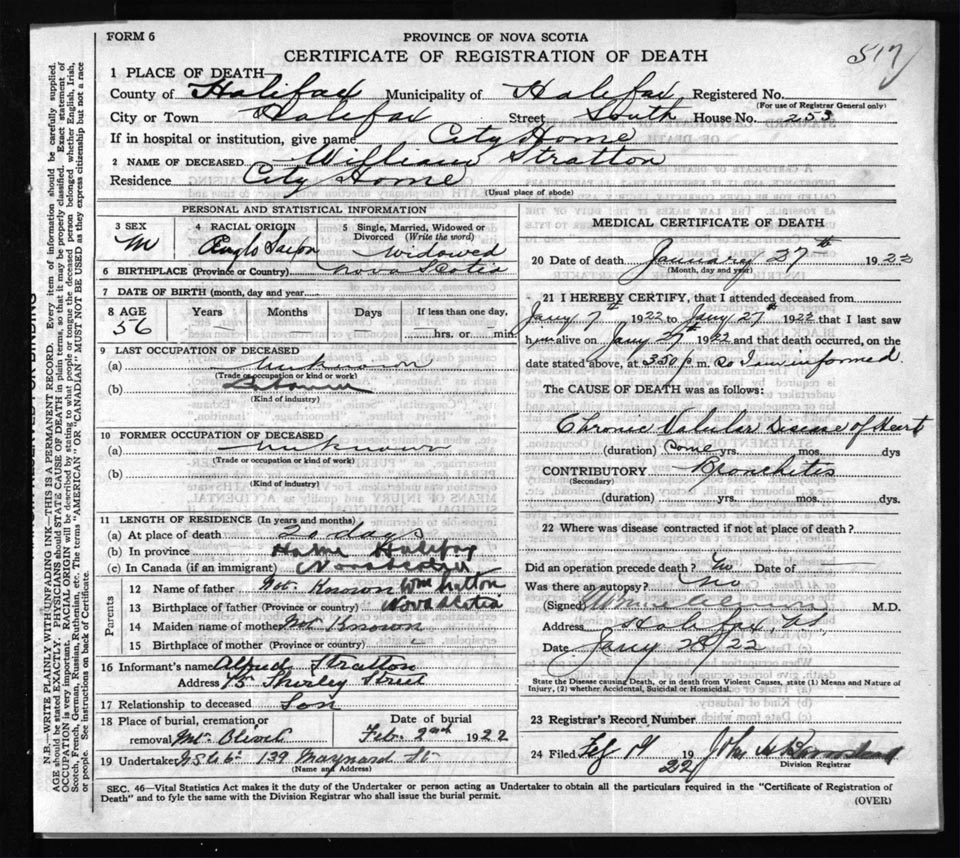 FORM 6
PROVINCE OF NOVA SCOTIA
CERTIFICATE OF REGISTRATION OF DEATH
517
1 PLACE OF DEATH
County of Halifax Municipality of Halifax Registered No.
(For use of Registrar General only)
City or Town Halifax Street South House No. 253
If in hospital or institution, give name City Home
2 NAME OF DECEASED William Stratton
Residence City Home
(Usual place of abode)
PERSONAL AND STATISTICAL INFORMATION
3 SEX M
4 RACIAL ORIGIN Anglo Saxon
5 Single, Married, Widowed or Divorced (Write the word) Widowed
6 BIRTHPLACE (Province or Country) Nova Scotia
7 DATE OF BIRTH (month, day and year)
8 AGE Years Months Days If less than one day,
56 hrs. or min
9 LAST OCCUPATION OF DECEASED
(a) unknown
(Trade or occupation or kind or work)
(b) Labourer
(Kind of industry)
10 FORMER OCCUPATION OF DECEASED
(a) unknown
(Trade or occupation or kind of work)
(b)
(Kind of industry)
11 LENGTH OF RESIDENCE (In years and months)
(a) At place of death 20 days
(b) In province Halifax
(c) In Canada (if an immigrant)
Parents
12 Name of father Not Known Wm
13 Birthplace of father (Province or country) Nova Scotia
14 Maiden name of mother Not Known
15 Birthplace of mother (Province or country)
16 Informant's name Alfred Stratton
Address 75 Shirley Street
17 Relationship to deceased Son
18 Place of burial, cremation or removal Mt. Olivet
Date of burial Feb. 2nd 1922
19 Undertaker 139 Maynard St
(Name and Address)
MEDICAL CERTIFICATE OF DEATH
20 Date of death January 27th 1922
(Month, day and year)
21 I HEREBY CERTIFY, that I attended deceased from
Jany 7th 1922 to Jany 27th 1922 that I last saw
him alive on Jany 27th 1922 and that death occurred, on the
date stated above, at 3.50 p m. so I'm informed
The CAUSE OF DEATH was as follows:
Chronic Valvular Disease of Heart
(duration) Some yrs. mos. dys
CONTRIBUTORY Bronchitis
(Secondary)
(duration) yrs. mos. dys.
22 Where was disease contracted if not at place of death?
Did an operation precede death? No Date of
Was there an autopsy? No
(Signed) M.D.
Address Halifax,
Date Jany 28/22
State the Disease causing Death, or in death from Violent Causes, state (1) Means and Nature of
Injury, (2) whether Accidental, Suicidal or Homicidal.
23 Registrar's Record Number
24 Filed Feb 1922 John
Division Registrar
SEC. 46—Vital Statistics Act makes it the duty of the Undertaker or person acting as Undertaker to obtain all the particulars required in the "Certificate of Registration of
Death" and to fyle the same with the Division Registrar who shall issue the burial permit.
(OVER)
N.B.—WRITE PLAINLY WITH UNFADING INK—THIS IS A PERMANENT RECORD. Every item of information should be carefully supplied.
AGE should be stated EXACTLY. PHYSICIANS should STATE CAUSE OF DEATH in plain terms, so that it may be properly classified. Exact statement of
OCCUPATION is very important. RACIAL ORIGIN will be described by stating to what people or tongue the deceased person belonged whether English, Irish,
Scotch, French, German, Russian, Ruthenian, etc. The terms "AMERICAN" OR "CANADIAN" MUST NOT BE USED as they express citizenship but not a race
or people. See instructions on back of Certificate.